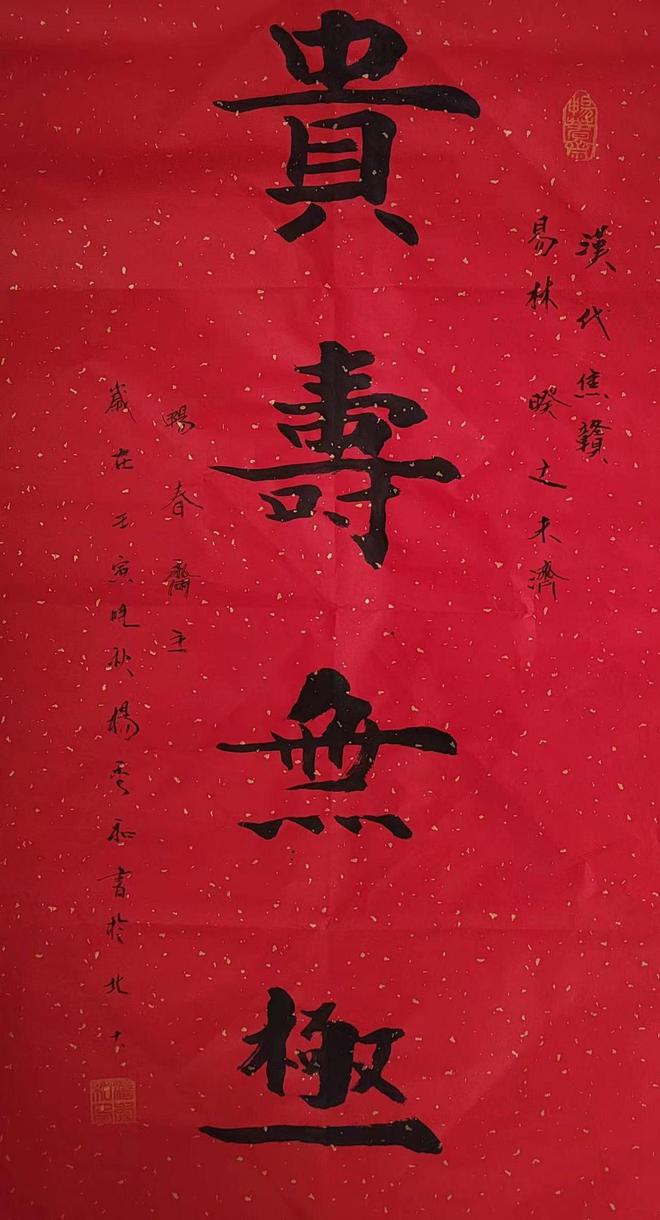 貴壽無極
漢代焦贛
易林睽之未濟
暢春齋主
歲在壬寅晚秋楊雲和書於北大